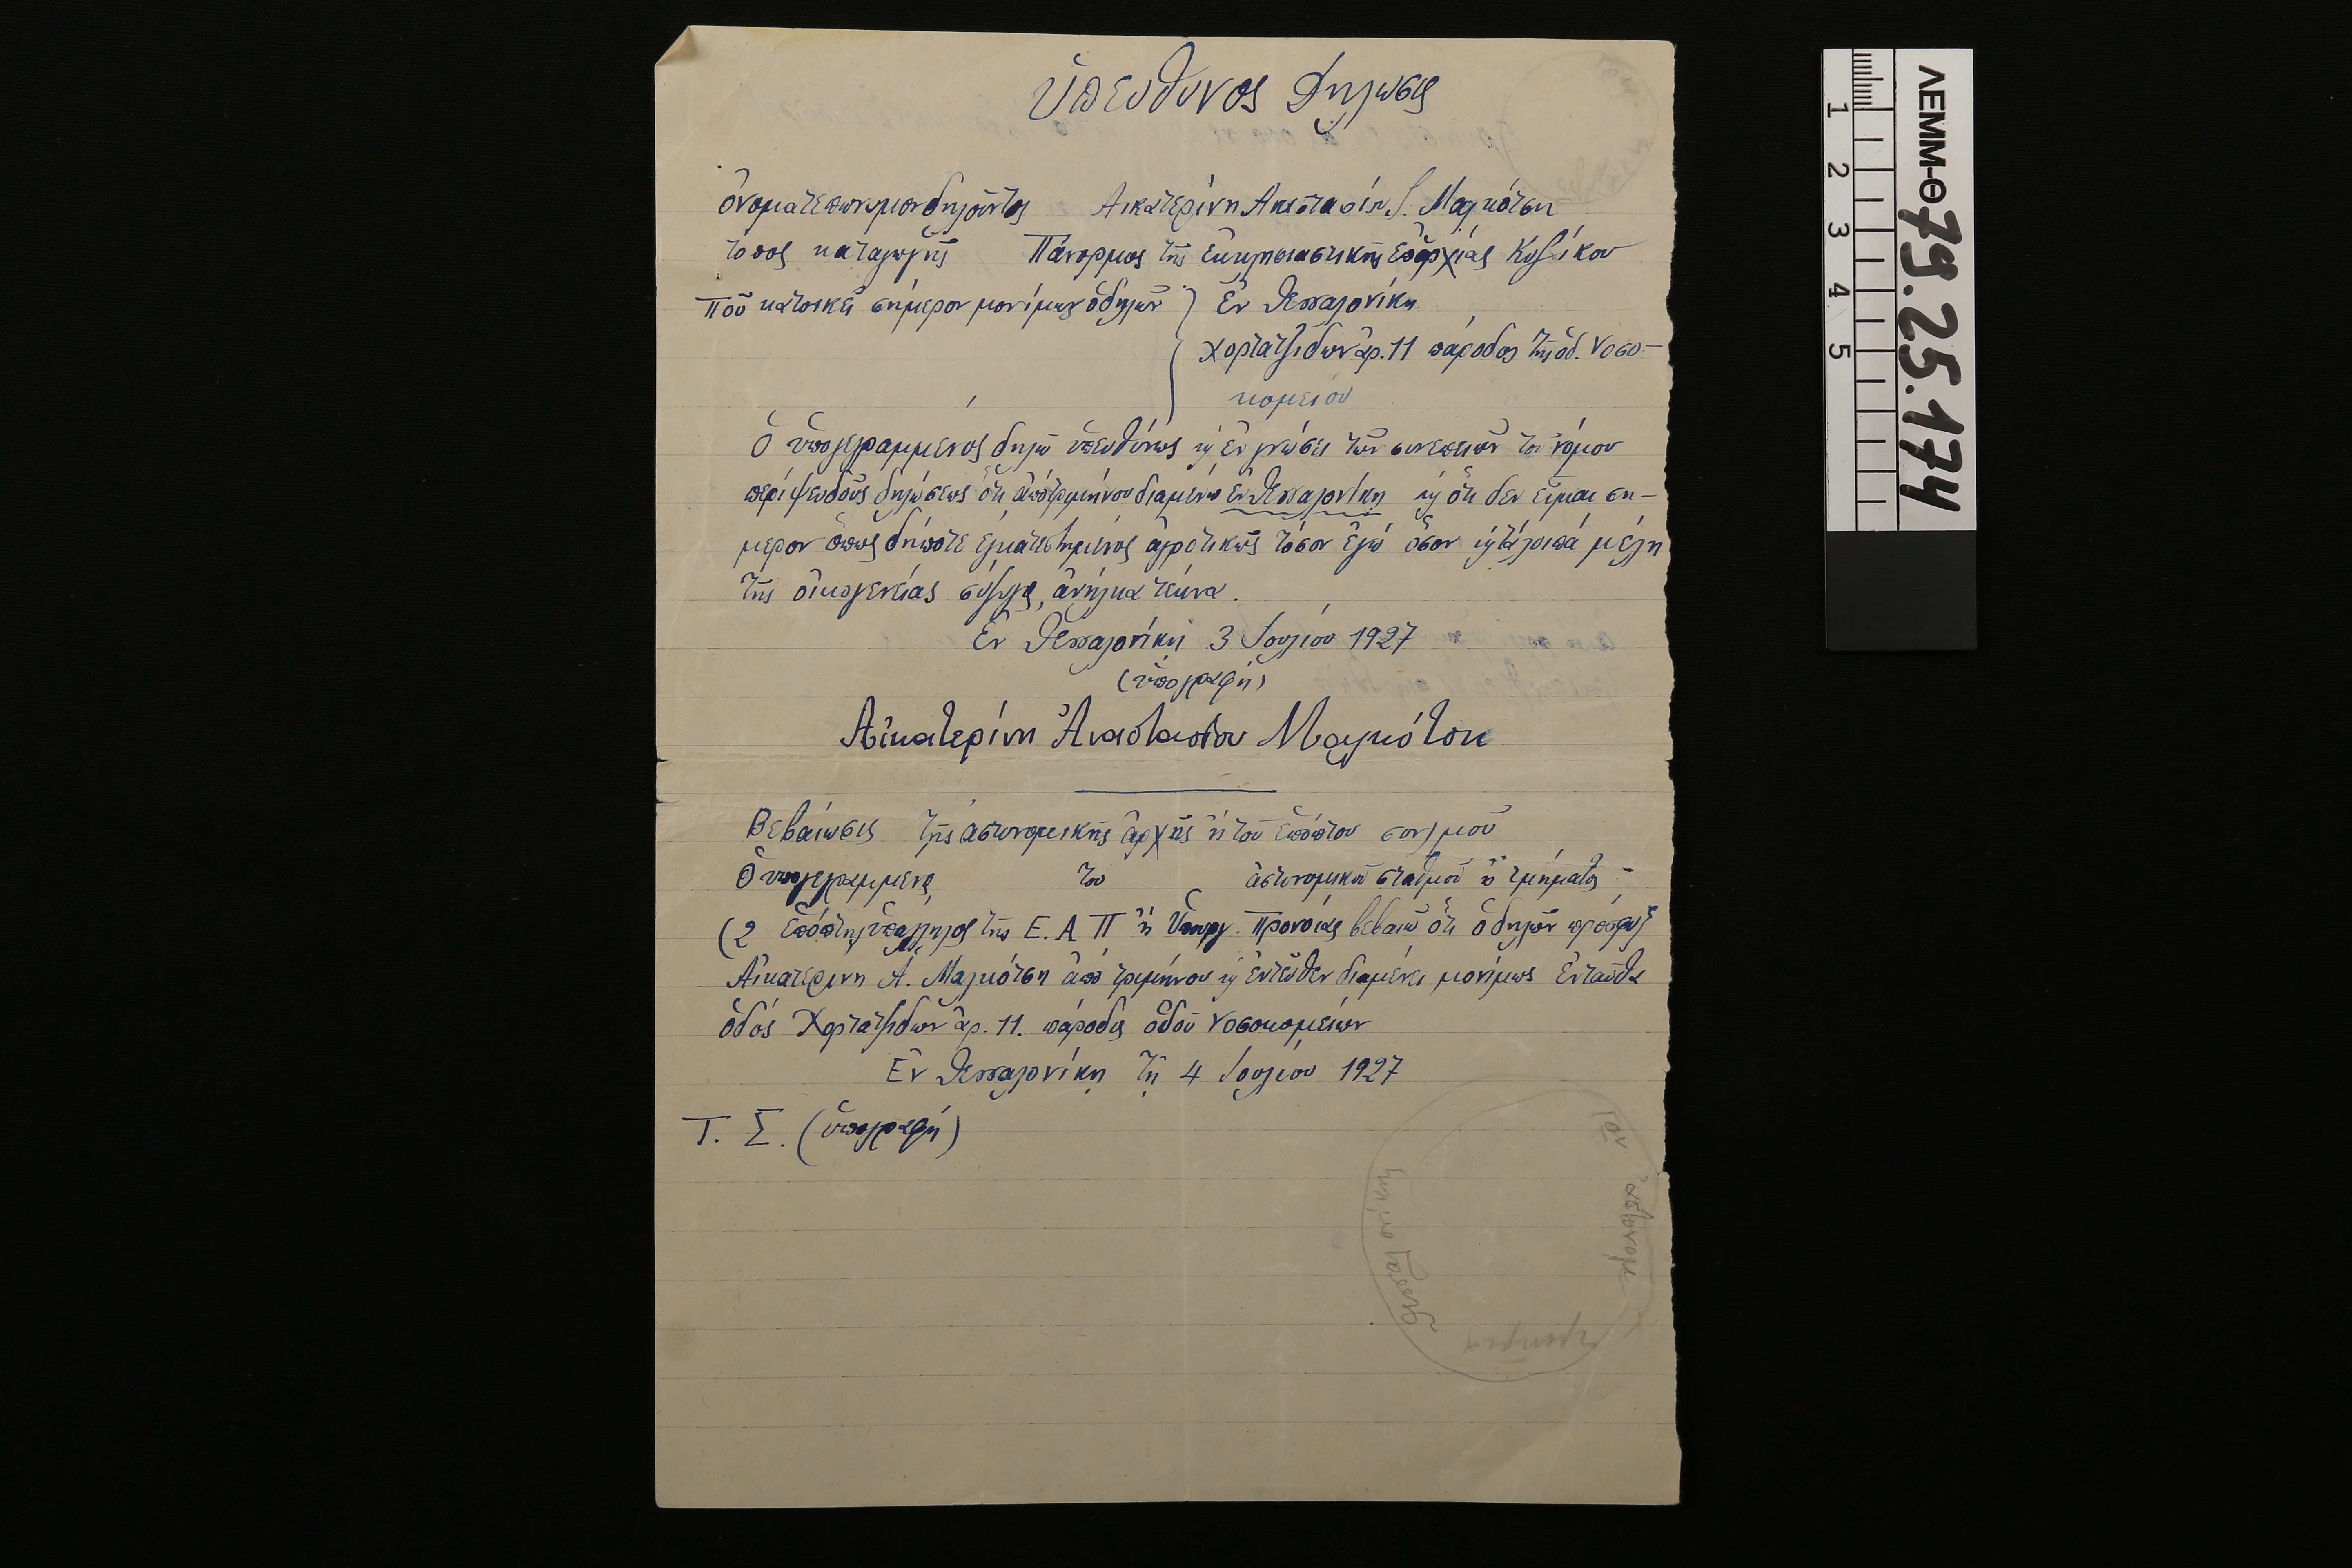 Ὑπεύθυνος Δήλωσις
ὀνοματεπώνυμον δηλοῦντος Αικατερίνη Αναστασίου Μαγκότση
τοπος καταγωγῆς Πάνορμος τῆς Ἐκκλησιαστικῆς Ἐπαρχίας Κυζίκου
Ποῦ κατοικεῖ σήμερον μονίμως ὁ δηλῶν } Ἐν Θεσσαλονίκη
Χορτατζιδων ἀρ. 11 πάροδος τῆς ὁδ. Νοσο-
κομείου
Ὁ ὑπογεγραμμένος δηλῶ ὑπευθύνως κ̀ ἐν γνώσει τῶν συνεπειῶν του νόμου
περί ψευδοῦς δηλώσεως ὅτι ἀπό τριμήνου διαμένω ἐν Θεσσαλονίκη κ̀ ὅτι δεν εἶμαι σή-
μερον ὅπως δήποτε ἐγκατεστημένος ἀγροτικῶς τόσον ἐγώ ὅσον κ̀ τά λοιπά μέλη
τῆς οἰκογενείας σύζυγος, ἀνήλικα τέκνα.
Ἐν Θεσσαλονίκη 3 Ἰουλίου 1927
(ὑπογραφή)
Αἰκατερίνη Ἀναστασίου Μαγκότση
Βεβαίωσις τῆς ἀστυνομικῆς ἀρχῆς ἤ τοῦ ἐπόπτου συν)μοῦ
Ὁ ὑπογεγραμμένος του ἀστυνομικοῦ σταθμοῦ ἤ τμήματος -
(2 ἐπόπτης ὑπάλληλος τῆς Ε. Α Π ἤ Ὑπουργ. Προνοίας βεβαιῶ ὅτι ὁ δηλῶν πρόσφυξ
Αἰκατερινη Α. Μαγκότση ἀπό τριμήνου κ̀ ἐντεῦθεν διαμένει μονίμως ἐνταῦθα
ὁδός Χορτατζιδων ἀρ. 11. πάροδος ὁδοῦ Νοσοκομείων
Ἐν Θεσσαλονίκη τῇ 4 Ἰουλίου 1927
Τ. Σ. (ὑπογραφή)
ΛΕΜΜ-Θ 79.25.174
1 2 3 4 5